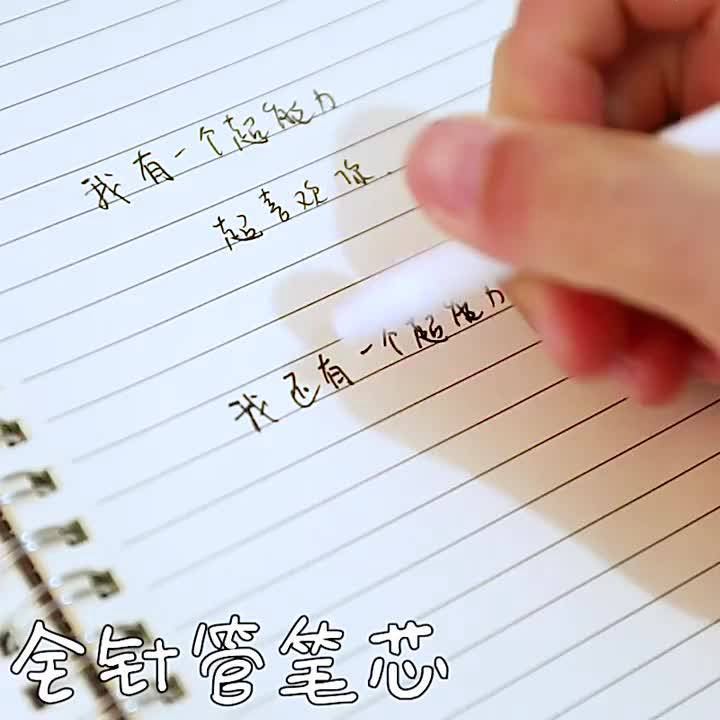 我有一个超能力
超喜欢你.
我还有一个超能力
全针管笔芯